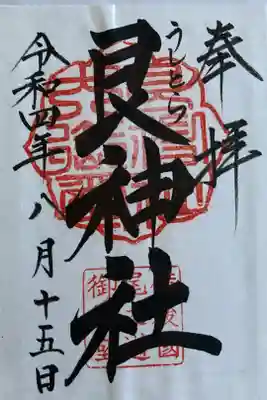 奉拝
うしとら
艮神社
令和四年八月十五日